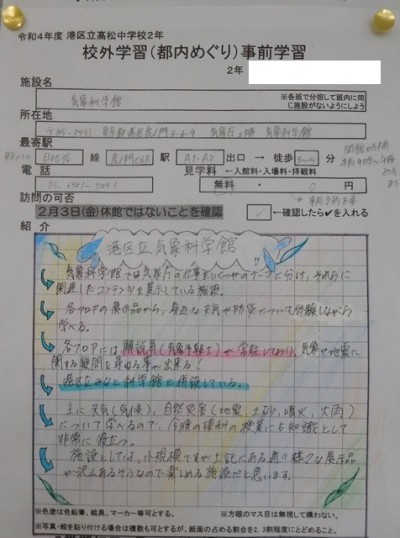 令和4年度 港区立高松中学校2年
校外学習(都内めぐり)事前学習
2年
施設名
気象科学館
※各班で分担して班内に同じ施設がないようにしよう
所在地
〒105-8431 東京都港区虎ノ門3-6-9 気象庁2階 気象科学館
最寄駅
日比谷 線 虎ノ門ヒルズ 駅 A1・A2 出口 → 徒歩 分
電話
見学料 ←入館料・入場料・拝観料
無料 ・ 0 円
訪問の可否
2月3日(金)休館ではないことを確認
✓ ←確認したら✔を入れる
紹 介
港区立気象科学館
気象科学館では気象庁の仕事をいくつかのテーマに分け、それらに
関連したコンテンツを展示している施設。
各フロアの展示品から、身近な天気や防災について体験しながら
学べる。
各フロアには解説員(気象予報士)が常駐しており、気象や地震に
関する疑問を尋ねる事が出来る!
港区立みなと科学館に併設している。
主に天気(気候)、自然災害(地震,土砂,噴火,大雨)
について学べるので、今後の理科の授業にも知識として
非常に役立つ。
施設としては、小規模ですが上記にある通り様々な展示品
が沢山あるそうなので楽しめる施設だと思います。
※色塗は色鉛筆、絵具、マーカー等可とする。 ※方眼のマス目は無視して構わない。
※写真・絵を貼り付ける場合は複数も可とするが、紙面の占める割合を2、3割程度にとどめること。